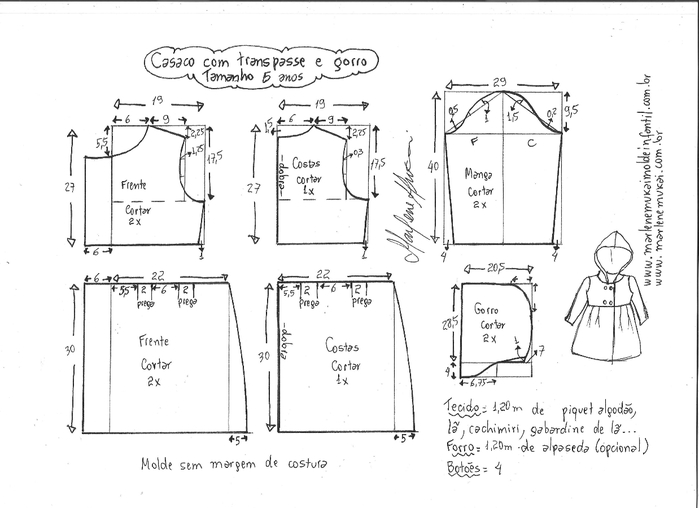 Casaco com transpasse e gorro
Tamanho 5 anos
19
6 9
5,5
2,25
1,25
17,5
27
Frente
Cortar
2x
6
1
19
1,5
6 9
2,25
0,3
17,5
27
dobra
Costas
cortar
1x
1
29
0,5
1
1,5
0,2
9,5
F C
40
Manga
Cortar
2x
4 4
Marlene Mukai
www.marlenemukaimoldeinfantil.com.br
www.marlenemukai.com.br
6 22
5,5 2 6 2
prega prega
30
Frente
Cortar
2x
5
22
5,5 2 6 2
prega prega
30
dobra
Costas
Cortar
1x
5
20,5
28,5
Gorro
Cortar
2x
1
7
4
6,75
Tecido = 1,20m de piquet algodão,
lã, cachimiri, gabardine de lã...
Forro = 1,20m de alpaseda (opcional)
Botões = 4
Molde sem margem de costura